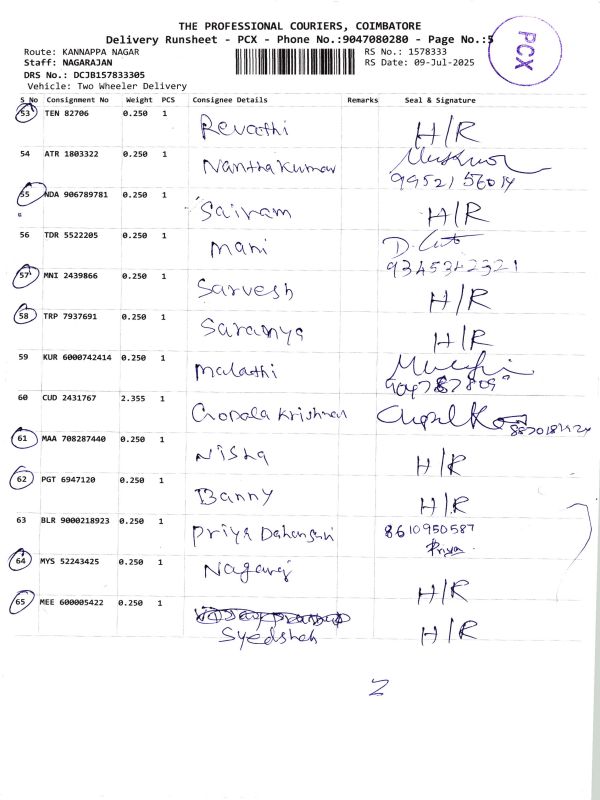 THE PROFESSIONAL COURIERS, COIMBATORE
Delivery Runsheet - PCX - Phone No.:9047080280 - Page No.:5
Route: KANNAPPA NAGAR
RS No.: 1578333
Staff: NAGARAJAN
RS Date: 09-Jul-2025
DRS No.: DCJB157833305
Vehicle: Two Wheeler Delivery
PCX
S No Consignment No Weight PCS Consignee Details Remarks Seal & Signature
53 TEN 82706 0.250 1 Revathi H/R
54 ATR 1803322 0.250 1 Nanthakumar
9952156014
55 NDA 906789781 0.250 1 Sairam H/R
56 TDR 5522205 0.250 1 Mani
9345342321
57 MNI 2439866 0.250 1 Sarvesh H/R
58 TRP 7937691 0.250 1 Saranya H/R
59 KUR 6000742414 0.250 1 Malathi
60 CUD 2431767 2.355 1 Gopala Krishnan
61 MAA 708287440 0.250 1 Nisha H/R
62 PGT 6947120 0.250 1 Banny H/R
63 BLR 9000218923 0.250 1 Priya 8610950587
Priya
64 MYS 52243425 0.250 1 Nagaraj H/R
65 MEE 600005422 0.250 1 Syedshah H/R